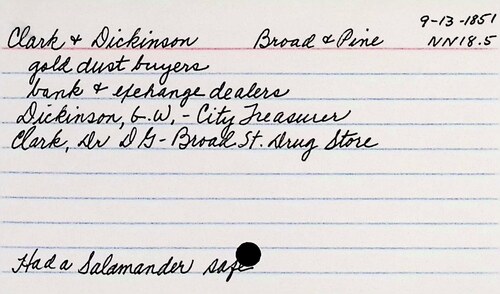 9-13-1851
Clark & Dickinson Broad & Pine NN18.5
gold dust buyers
bank & exchange dealers
Dickinson, G.W, - City Treasurer
Clark, Dr D G - Broad St. Drug Store
Had a Salamander safe